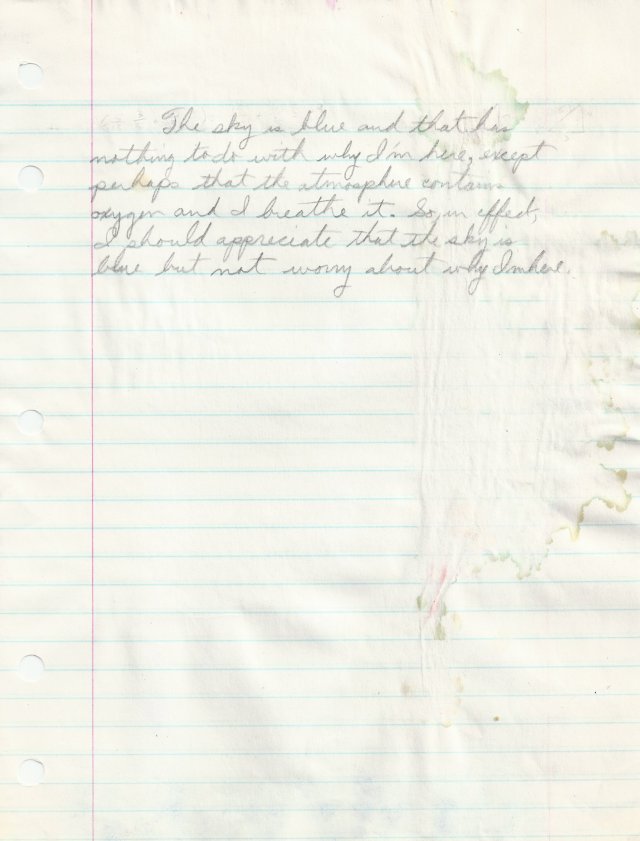 The sky is blue and that has
nothing to do with why I'm here, except
perhaps that the atmosphere contains
oxygen and I breathe it. So, in effect,
I should appreciate that the sky is
blue but not worry about why I'm here.